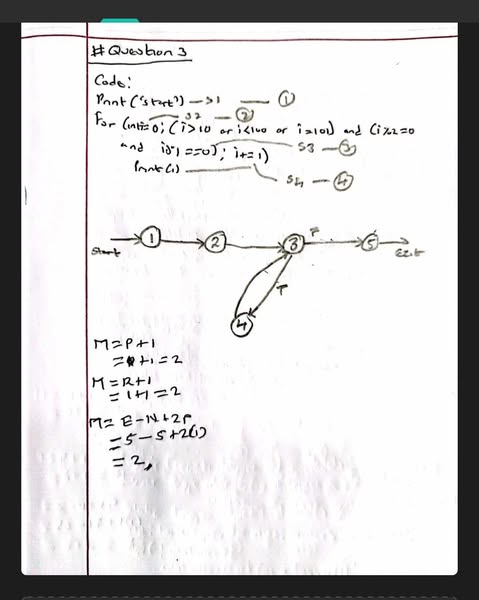 # Question 3
Code:
Print("start") —> S1 — ①
For (int i=0; (i>10 or i<100 or i>101) and (i%2=0 S2 — ②
and i%1==0); i+=1) S3 — ③
Print(i) — S4 — ④
Start 1 2 3 F 5 Exit
T
4
M=P+1
+1=2
M=R+1
=1+1=2
M= E-N+2P
=5-5+2(1)
=2,